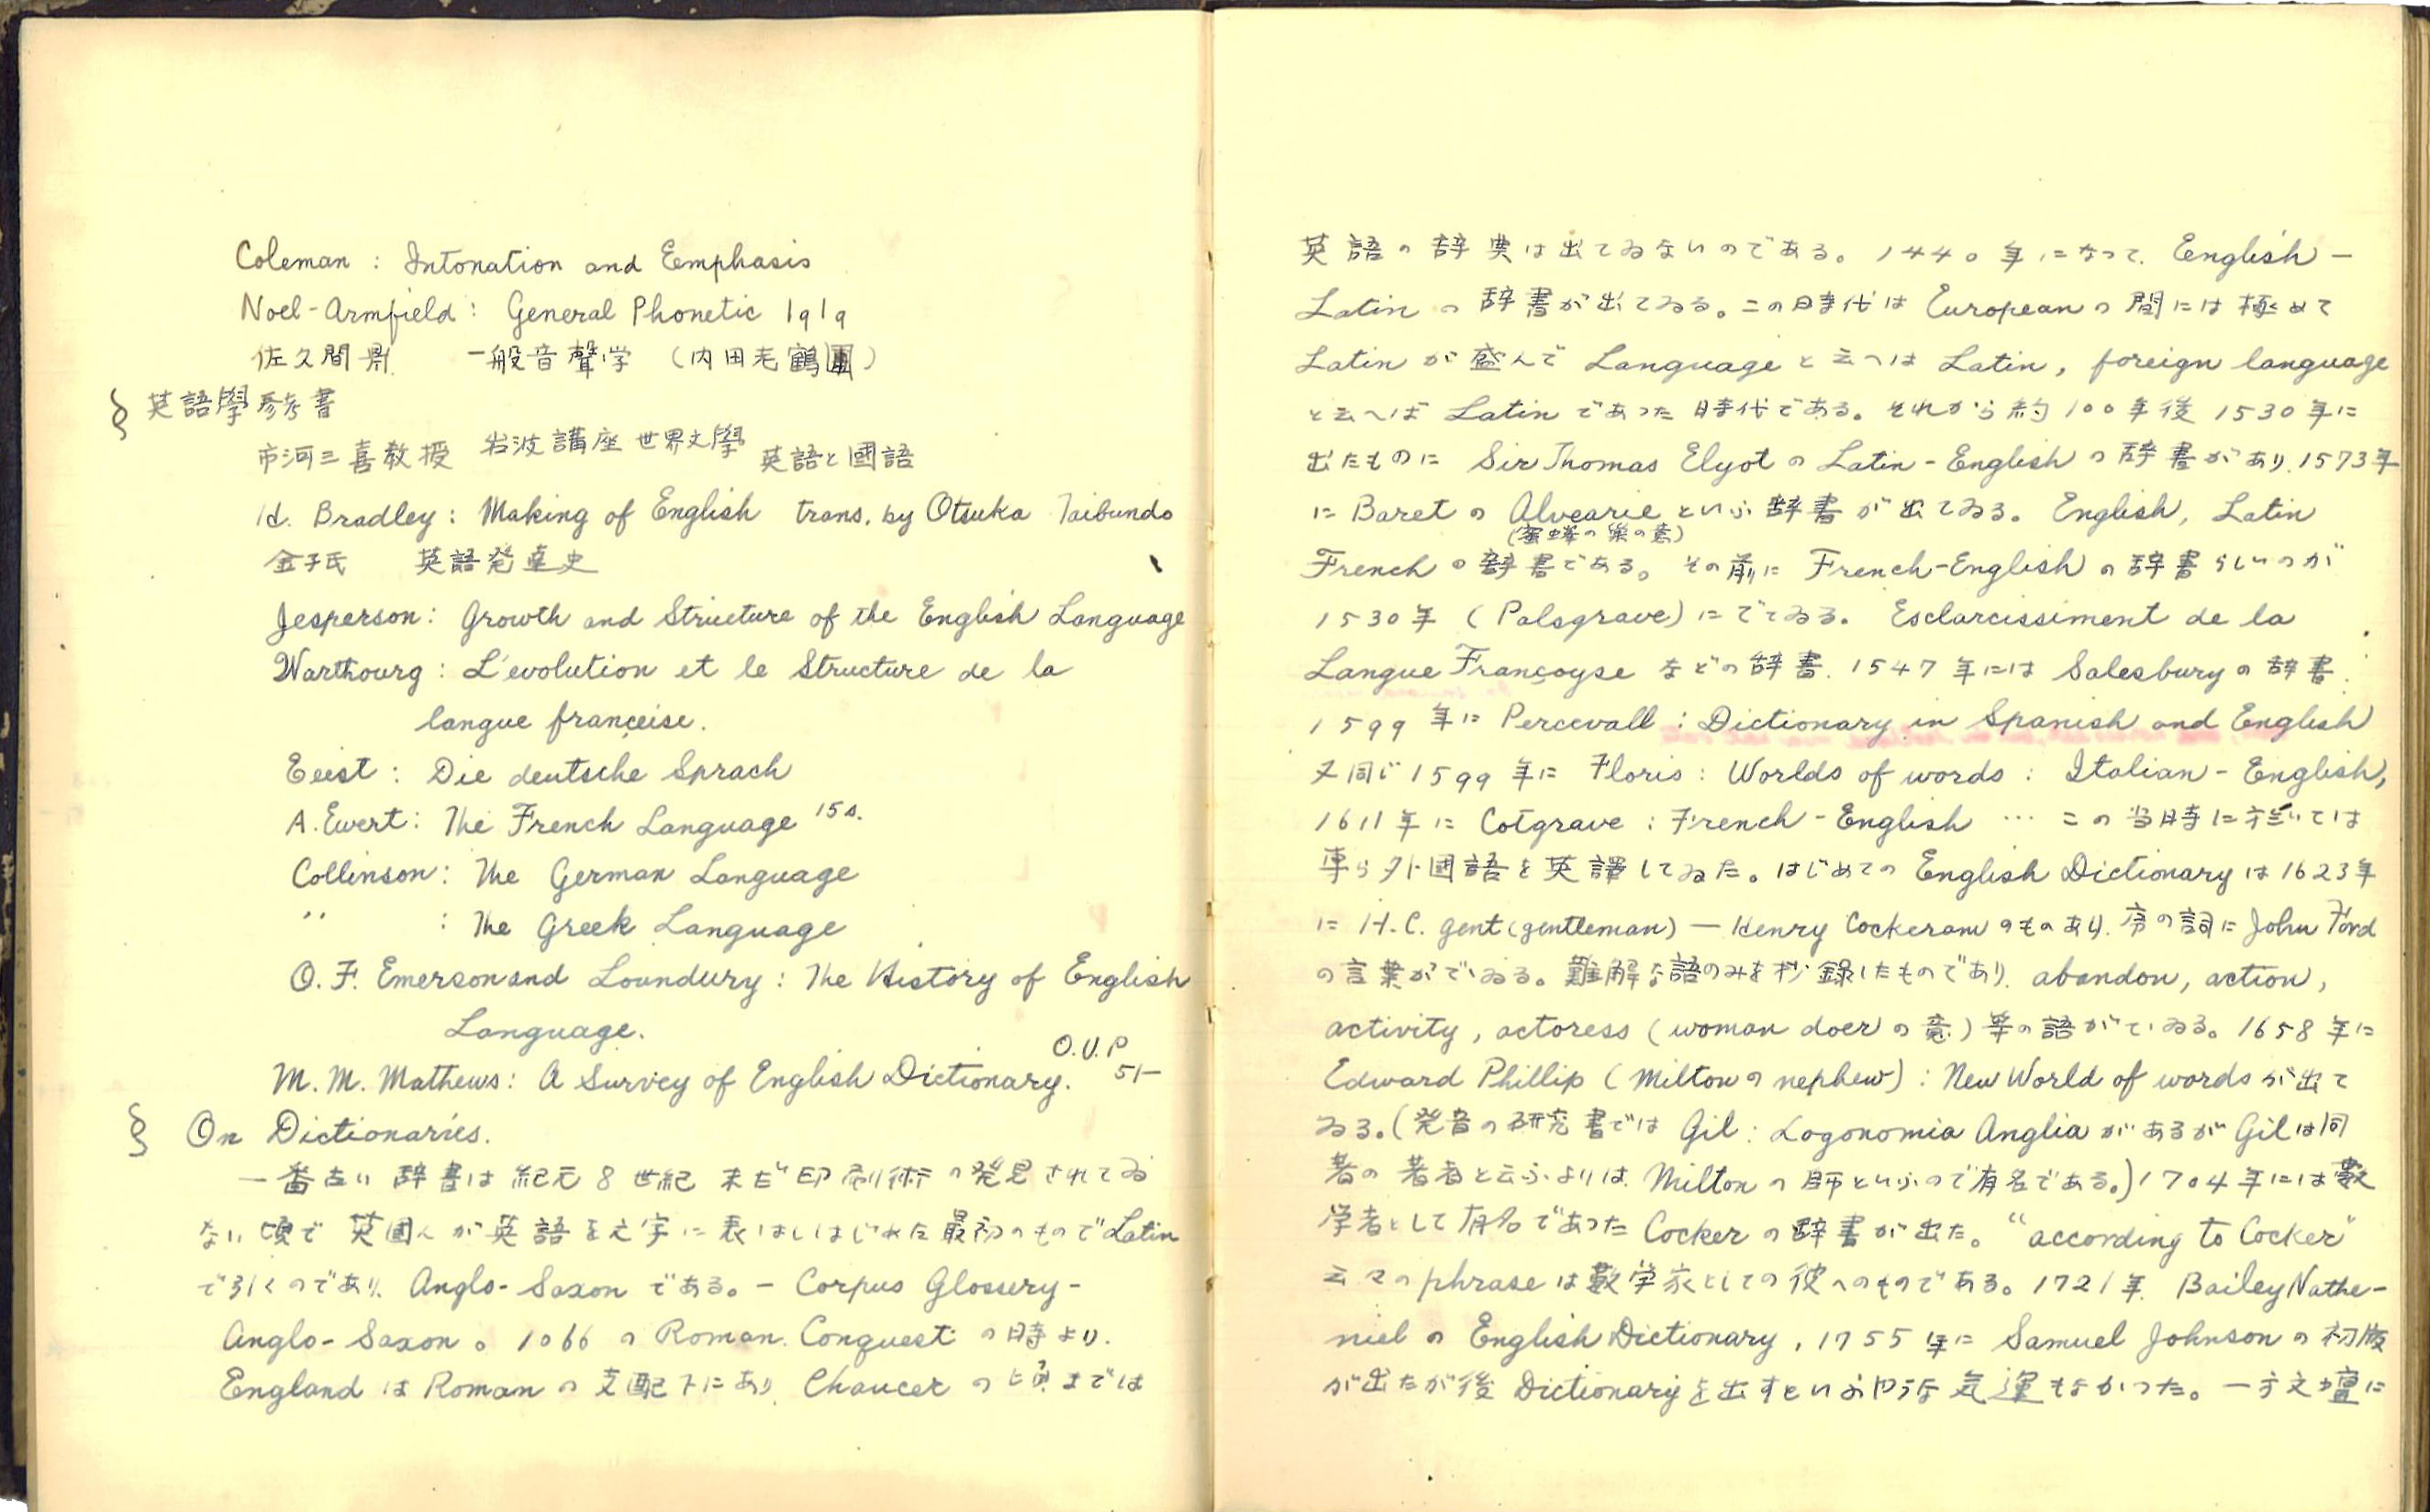 Coleman : Intonation and Eemphasis
Noel-Armfield : General Phonetic 1919
佐久間鼎 一般音聲学 (内田老鶴圃)
§ 英語學参考書
市河三喜教授 岩波講座世界文學 英語と國語
H. Bradley : Making of English trans. by Otsuka Taibundo
金子氏 英語発達史
Jesperson : Growth and Structure of the English Language
Warthourg : L'evolution et le Structure de la
langue françeise.
Eeist : Die deutsche Sprach
A. Ewert : The French Language 15s.
Collinson : The German Language
〃 : The Greek Language
O. F. Emerson and Loundury : The History of English
Language.
M. M. Mathews : A Survey of English Dictionary. O.U.P 5/-
§ On Dictionaries.
一番古い辞書は紀元8世紀 未だ印刷術の発見されてゐ
ない頃で 英國人が英語を文字に表はしはじめた最初のものでLatin
で引くのであり、Anglo-Saxon である。- Corpus Glossery -
Anglo-Saxon。1066 の Roman Conquest の時より、
England は Roman の支配下にあり、Chaucer の頃までは
英語の辞典は出てゐないのである。1440年になって、English -
Latin の辞書が出てゐる。この時代は European の間には極めて
Latin が盛んで Language と云へは Latin, foreign language
と云へば Latin であった時代である。それから約100年後 1530年に
出たものに Sir Thomas Elyot の Latin-English の辞書があり、1573年
に Baret の Alvearie といふ辞書が出てゐる。English, Latin
(蜜蜂の巣の意)
French の辞書である。その前に French-English の辞書らしいのが
1530年 (Palsgrave) にでてゐる。Esclarcissiment de la
Langue Françoyse などの辞書、1547年には Salesbury の辞書、
1599年に Percevall : Dictionary in Spanish and English
又同じ1599年に Floris : Worlds of words : Italian-English,
1611年に Cotgrave : French-English … この当時に於いては
専ら外國語を英譯してゐた。はじめての English Dictionary は1623年
に H.C. gent (gentleman) — Henry Cockeram のものあり、序の詞に John Ford
の言葉がでゐる。難解な語のみを抄録したものであり、abandon, action,
activity, actoress (woman doer の意) 等の語がでゐる。1658年に
Edward Phillip (Milton の nephew) : New World of words が出て
ゐる。(発音の研究書では Gil : Logonomia Anglia があるが Gil は同
著の著者と云ふよりは、Milton の師といふので有名である。) 1704年には數
学者として有名であった Cocker の辞書が出た。“according to Cocker”
云々の phrase は數学家としての彼へのものである。1721年 Bailey Nathe-
niel の English Dictionary, 1755年に Samuel Johnson の初版
が出たが後 Dictionary を出すといふやうな気運もなかつた。一方文壇に